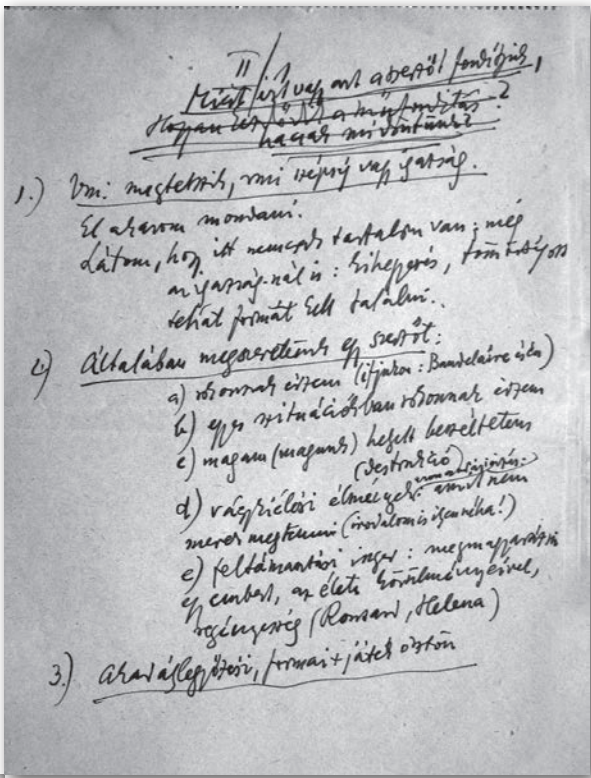 II
Miért ezt vagy azt a szerzőt fordítjuk,
Hogyan a műfordítás?
1.) Vmi megtetszik, vmi szépség vagy igazság.
El akarom mondani.
Látom, hogy itt nemcsak tartalom van; még
az igazság-nál is: kifejezés, tömörség
tehát formát kell találni.
2) Általában megszeretünk egy szerzőt:
a) rokonnak érzem (ifjukor: Baudelaire és én)
b) egyes szituációkban rokonnak érzem
c) magam (magunk) helyett beszéltetem
(destrukció)
d) vágykiélési élmények: amit nem
merek megtenni (irodalom is ilyen néha!)
e) feltámasztási inger: megmagyarázni
egy embert, az életi körülményeivel,
regényesség (Ronsard, Helena)
3.) akadálylegyőzési, formai + játék ösztön